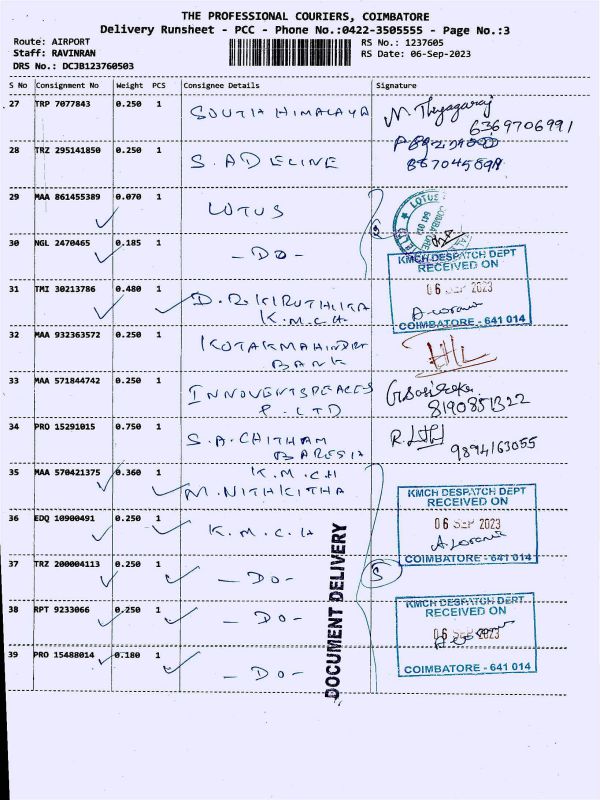 THE PROFESSIONAL COURIERS, COIMBATORE
Delivery Runsheet - PCC - Phone No.:0422-3505555 - Page No.:3
Route: AIRPORT
RS No.: 1237605
Staff: RAVINRAN
RS Date: 06-Sep-2023
DRS No.: DCJB123760503
S No Consignment No Weight PCS Consignee Details Signature
27 TRP 7077843 0.250 1 SOUTH HIMALAYA N. Thyagaraj
6369706991
28 TRZ 295141850 0.250 1 S. ADELINE
29 MAA 861455389 0.070 1 LOTUS
LOTUS
COIMBATORE
641 014
30 NGL 2470465 0.185 1 - DO -
KMCH DESPATCH DEPT
RECEIVED ON
06 SEP 2023
COIMBATORE - 641 014
31 TMI 30213786 0.480 1 D. R. KIRUTHIKA
K.M.C.H
32 MAA 932363572 0.250 1 KOTAK MAHINDRA
BANK
33 MAA 571844742 0.250 1 INNOVENT SPEACES
P. LTD
8190851322
34 PRO 15291015 0.750 1 S. A. CHITHAM
BARESH
9894163055
35 MAA 570421375 0.360 1 K.M.CH
M. NITHKITHA
KMCH DESPATCH DEPT
RECEIVED ON
06 SEP 2023
COIMBATORE - 641 014
36 EDQ 10900491 0.250 1 K.M.C.H
37 TRZ 200004113 0.250 1 - DO -
S
38 RPT 9233066 0.250 1 - DO -
KMCH DESPATCH DEPT
RECEIVED ON
06 SEP 2023
COIMBATORE - 641 014
39 PRO 15488014 0.180 1 - DO -
DOCUMENT DELIVERY